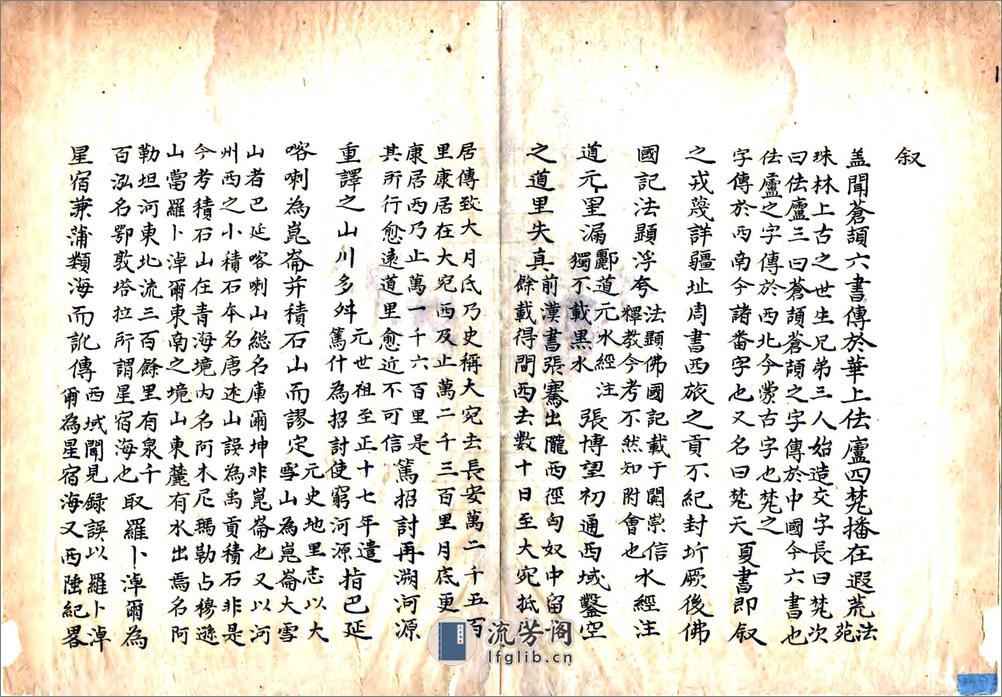 叙
盖聞蒼頡六書傳於華上佉盧四梵播在遐荒法苑
珠林上古之世生兄弟三人始造文字長曰梵次
曰佉盧三曰蒼頡蒼頡之字傳於中國今六書也
佉盧之字傳於西北今蒙古字也梵之
字傳於西南今諸番字也又名曰梵天
夏書即叙
之戎幾詳疆址周書西旅之貢不紀封圻厥後佛
國記法顕浮夸
法顕佛國記載于闐崇信
釋教今考不然知附會也
水經注
道元里漏
酈道元水經注
獨不載黒水
張博望初通西域鑿空
之道里失真
前漢書張騫出隴西徑匈奴中留
餘載得間西去數十日至大宛抵
居傳致大月氏乃史稱大宛去長安萬二千五百
里康居在大宛西及止萬二千三百里月底更
康居西乃止萬一千六百里是
其所行愈遠道里愈近不可信
篤招討再溯河源
重譯之山川多舛
元世祖至正十七年遣
篤什為招討使窮河源
指巴延
喀喇為崑崙并積石山而謬定
元史地里志以大
雪山為崑崙大雪
山者巴延喀喇山総名庫爾坤非崑崙也又以河
州西之小積石本名唐述山誤為禹貢積石非是
今考積石山在青海境内名阿木尼瑪勒占穆遜
山當羅卜淖爾東南之境山東麓有水出焉名阿
勒坦河東北流三百餘里有泉千
百泓名鄂敦塔拉所謂星宿海也
取羅卜淖爾為
星宿兼蒲類海而訛傳
西域聞見録誤以羅卜淖
爾為星宿海又西陲紀畧
流芳阁
lfglib.cn